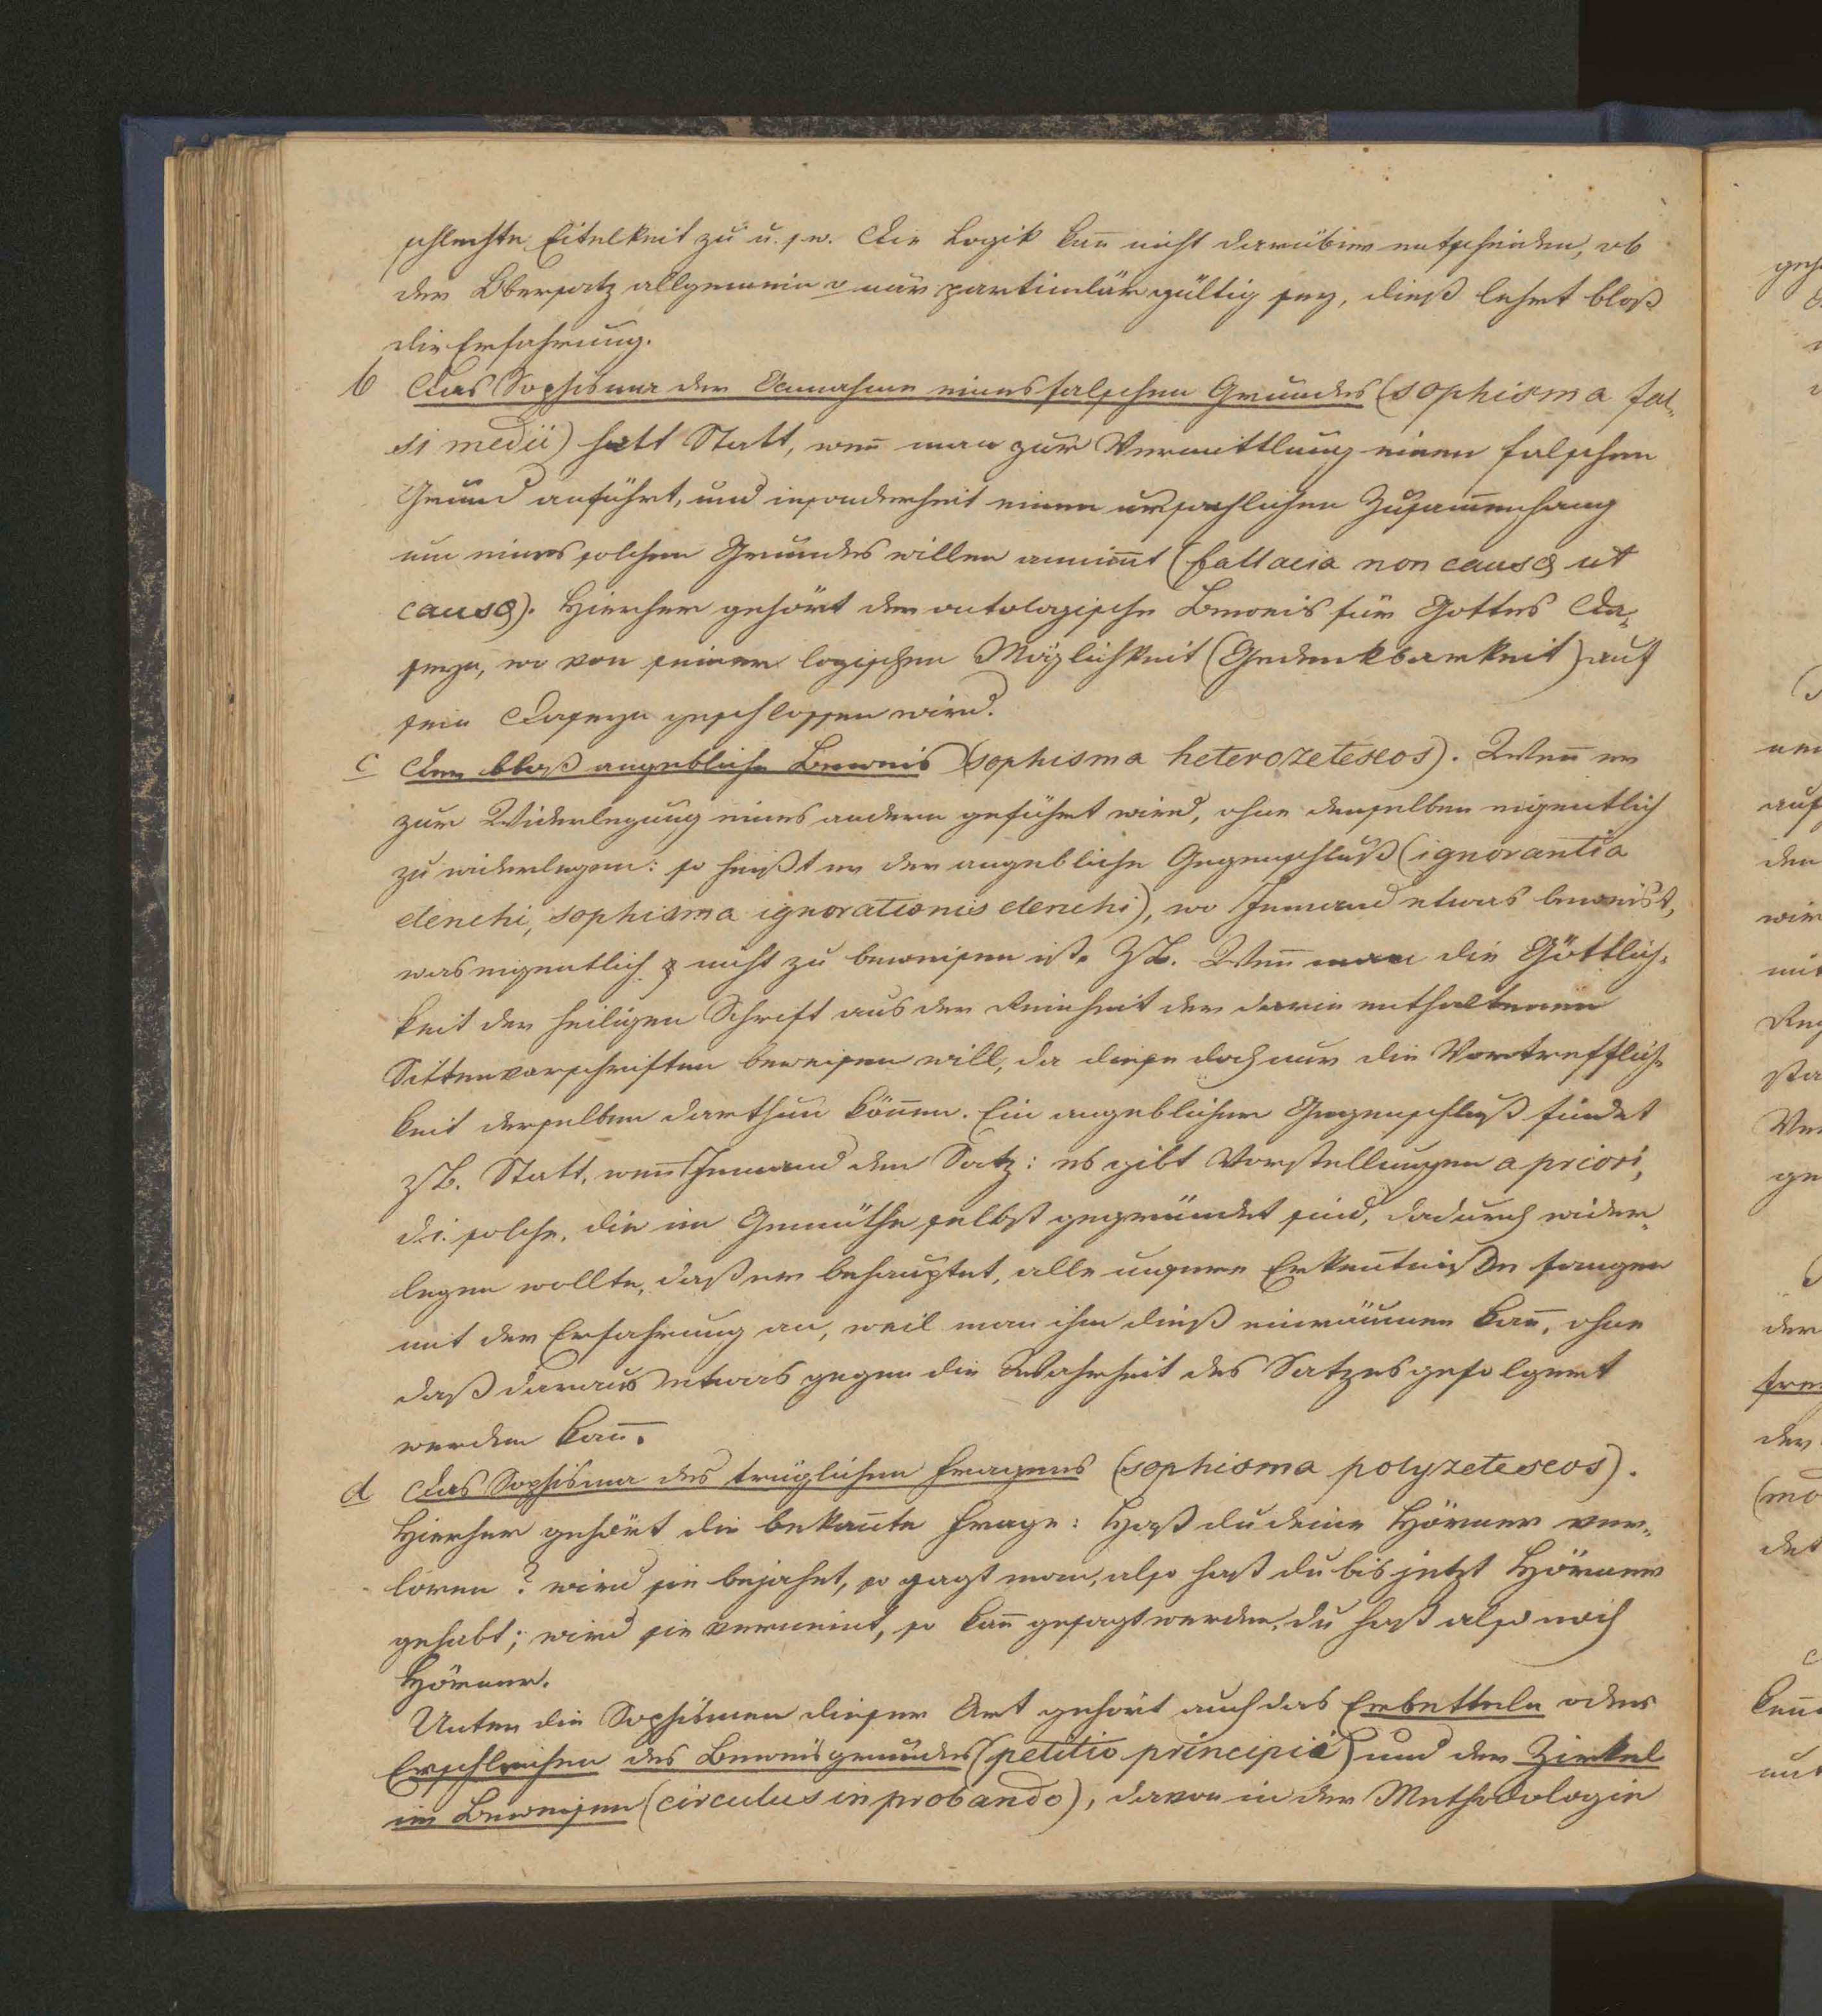 schlechte Eitelkeit zu u. s. w. Die Logik kan̄ nicht darüber entscheiden, ob
der Obersatz allgemein o nur partikulär gültig sey, dieß lehrt bloß
die Erfahrung.
b Das Sophisma der Annahme eines falschen Grundes (sophisma fal-
si medii) hatt Statt, wen̄ man zur Vermittlung einen falschen
Grund anführt, und insonderheit einen ursachlichen Zusam̄enhang
um eines solchen Grundes willen annim̄t (fallacia non causæ ut
causæ). Hierher gehört der ontologische Beweis für Gottes Da-
seyn, wo von seiner logischen Möglichkeit (Gedenkbarkeit) auf
sein Daseyn geschlossen wird.
c Der bloß angebliche Beweis (sophisma heterozeteseos). Wen̄ er
zur Widerlegung eines andern geführt wird, ohne denselben eigentlich
zu widerlegen: so heißt er der angebliche Gegenschluß (ignorantia
elenchi, sophisma ignorationis elenchi), wo Jemand etwas beweist,
was eigentlich nicht zu beweisen ist. ZB. Wen̄ man die Göttlich-
keit der heiligen Schrift aus der Reinheit der darin enthaltenen
Sittenvorschriften beweisen will, da diese doch nur die Vortrefflich-
keit derselben darthun kön̄en. Ein angeblicher Gegenschluß findet
zB. Statt, wen̄ Jemand den Satz: es gibt Vorstellungen a priori,
d. i. solche, die im Gemüthe selbst gegründet sind, dadurch wider-
legen wollte, daß er behauptet, alle unsere Erken̄tniße fangen
mit der Erfahrung an, weil man ihm dieß einräumen kan̄, ohne
daß daraus etwas gegen die Wahrheit des Satzes gefolgert
werden kan̄.
d Das Sophisma des trüglichen Fragens (sophisma polyzeteseos).
Hierher gehört die bekan̄te Frage: Hast du deine Hörner ver-
loren? wird sie bejahet, so sagt man, also hast du bis jetzt Hörner
gehabt; wird sie verneint, so kan̄ gesagt werden, du hast also noch
Hörner.
Unter die Sophismen dieser Art gehört auch das Erbetteln oder
Erschleichen des Beweisgrundes (petitio principii) und der Zirkel
im Beweisen (circulus in probando), davon in der Methodologie